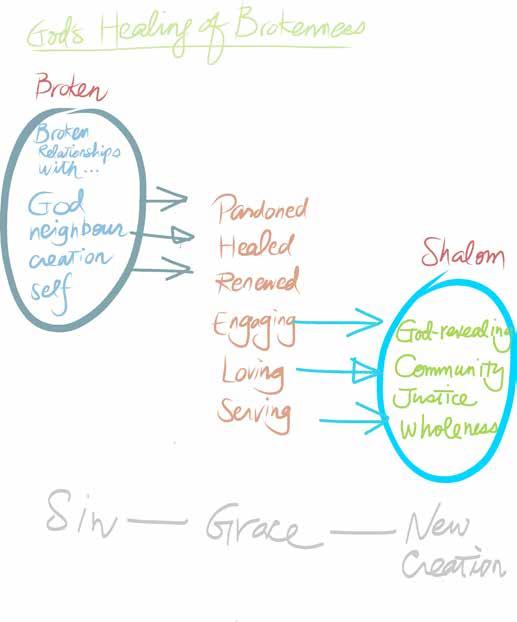 God's Healing of Brokenness
Broken
Broken
Relationships
with...
God
neighbour
creation
self
Pardoned
Healed
Renewed
Engaging
Loving
Serving
Shalom
God-revealing
Community
Justice
Wholeness
Sin — Grace — New
Creation